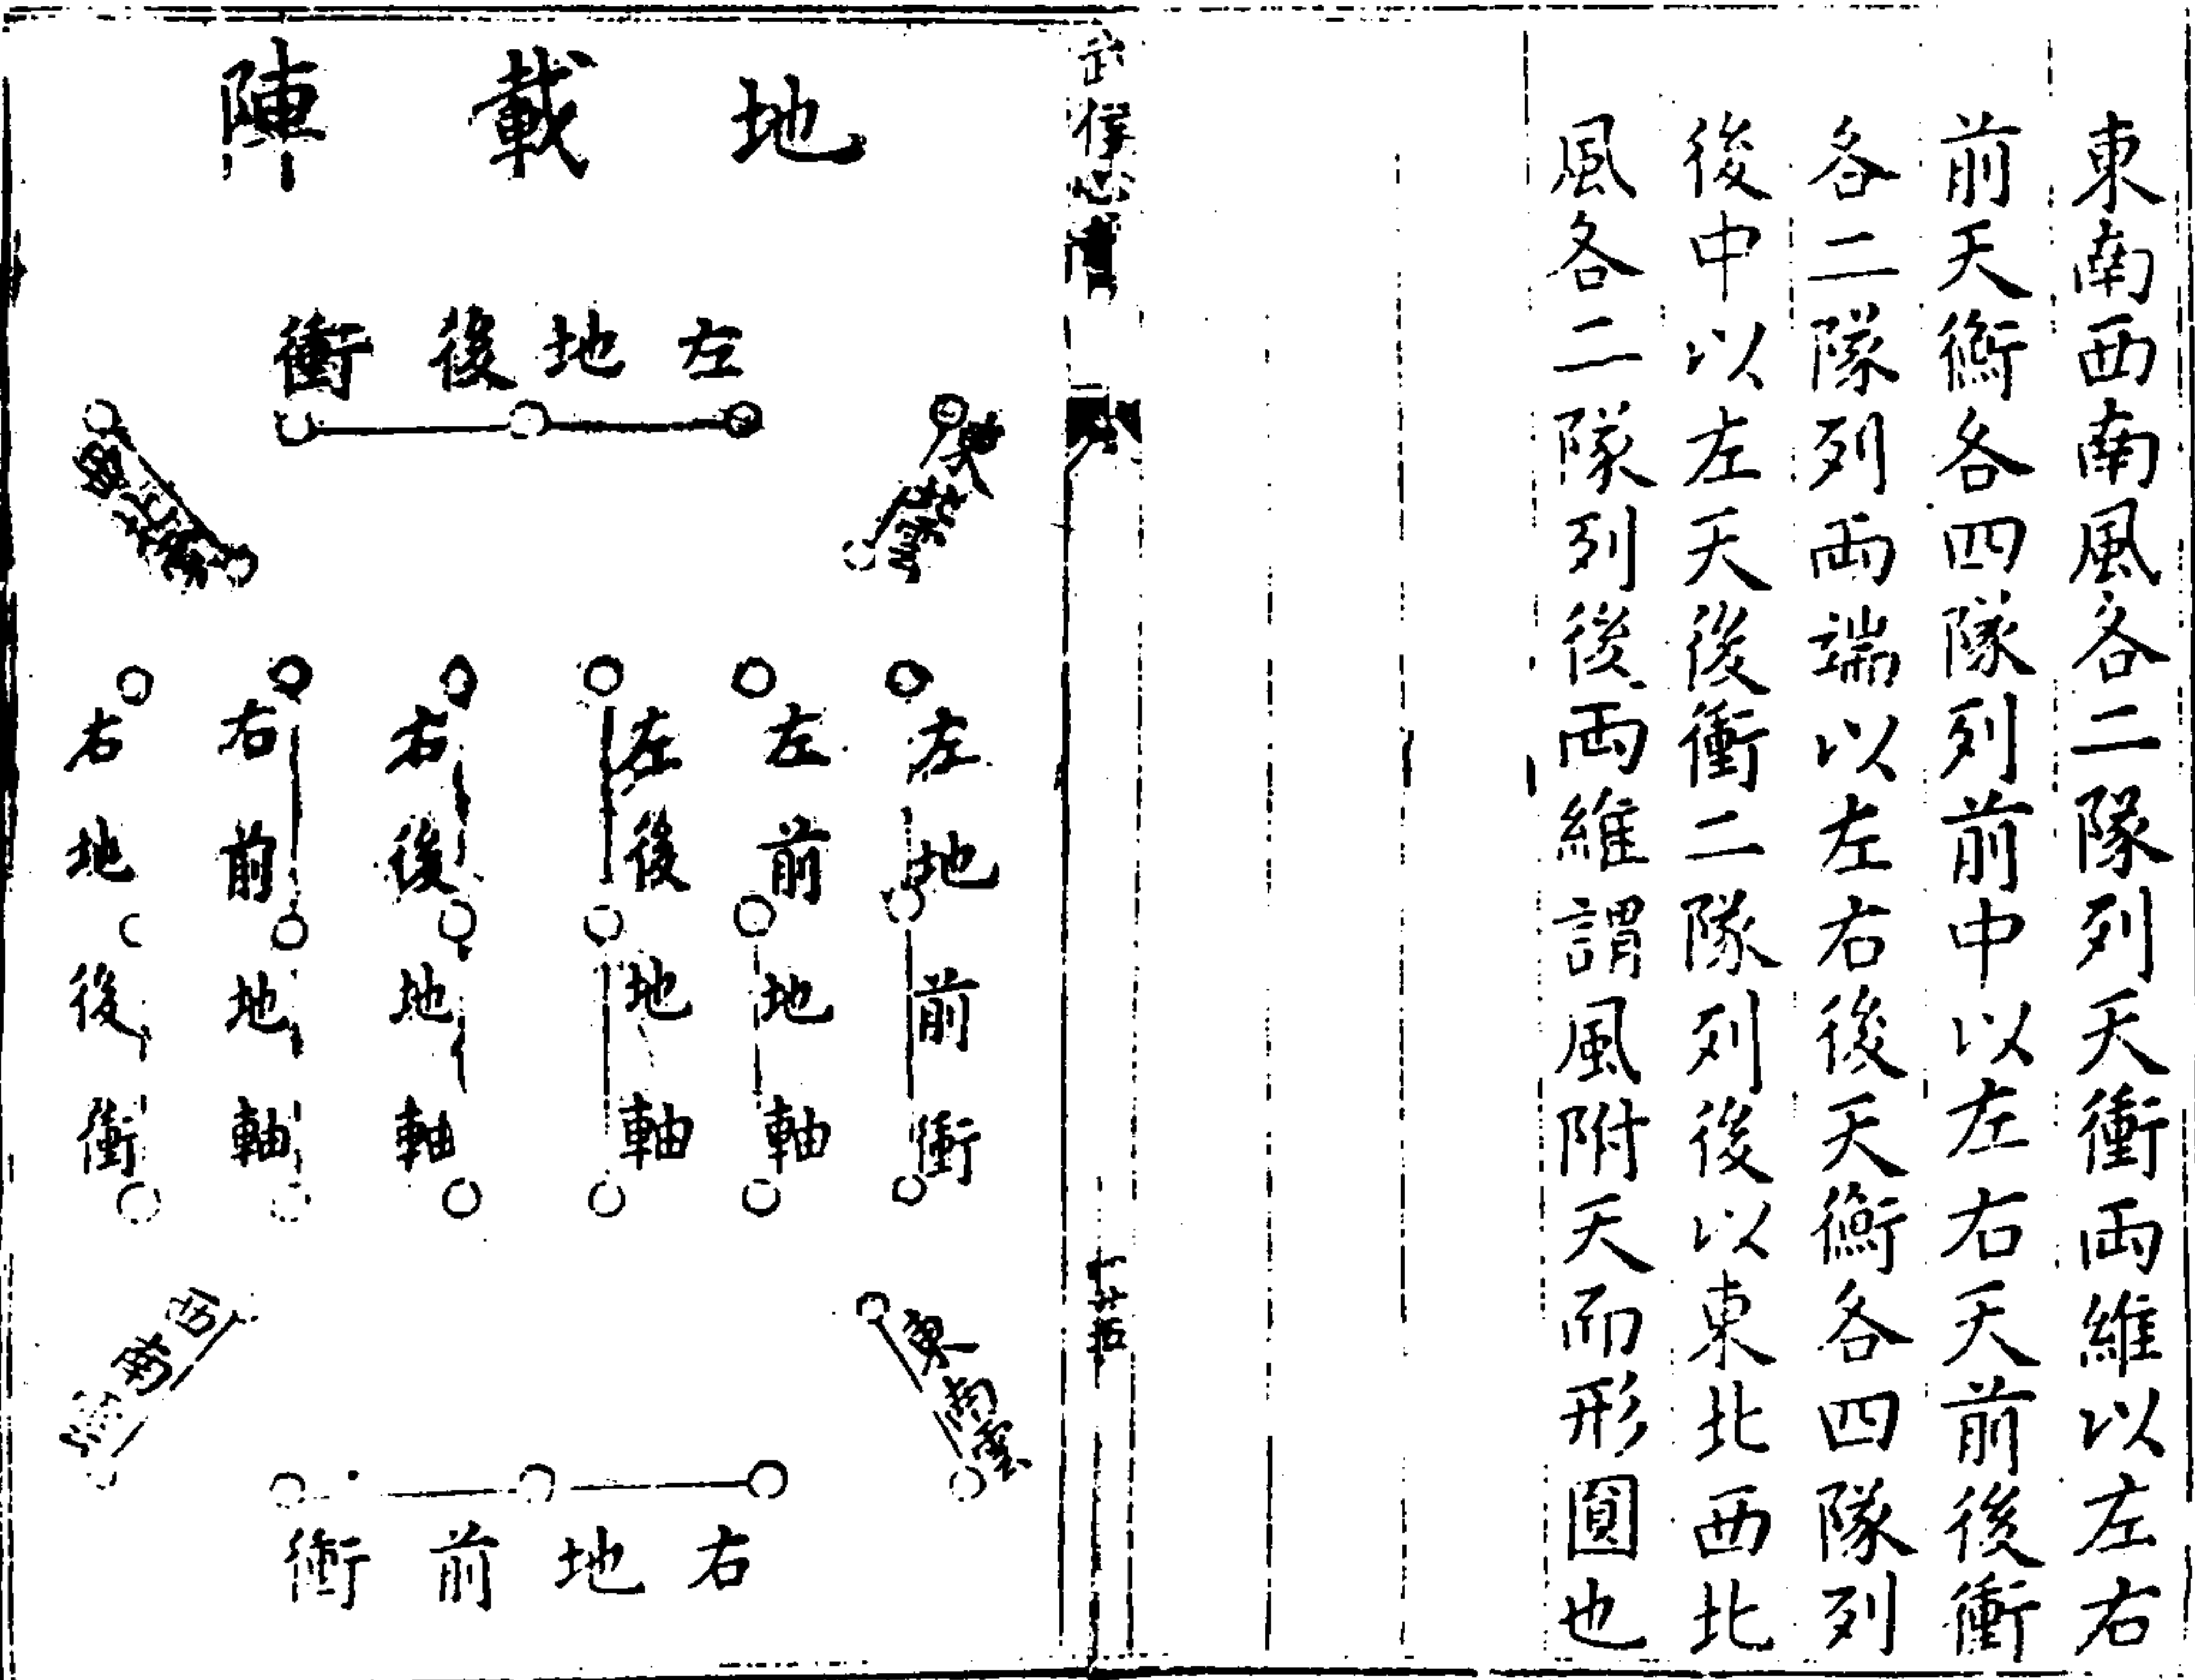 東南西南風各二隊列天衝兩維以左右
前天衡各四隊列前中以左右天前後衝
各二隊列兩端以左右後天衡各四隊列
後中以左天後衝二隊列後以東北西北
風各二隊列後兩維謂風附天而形圓也
武侯心書
地載陣
左地後衝
東北雲
左地前衝
左前地軸
左後地軸
右後地軸
右前地軸
右地後衝
東南雲
西南
右地前衝